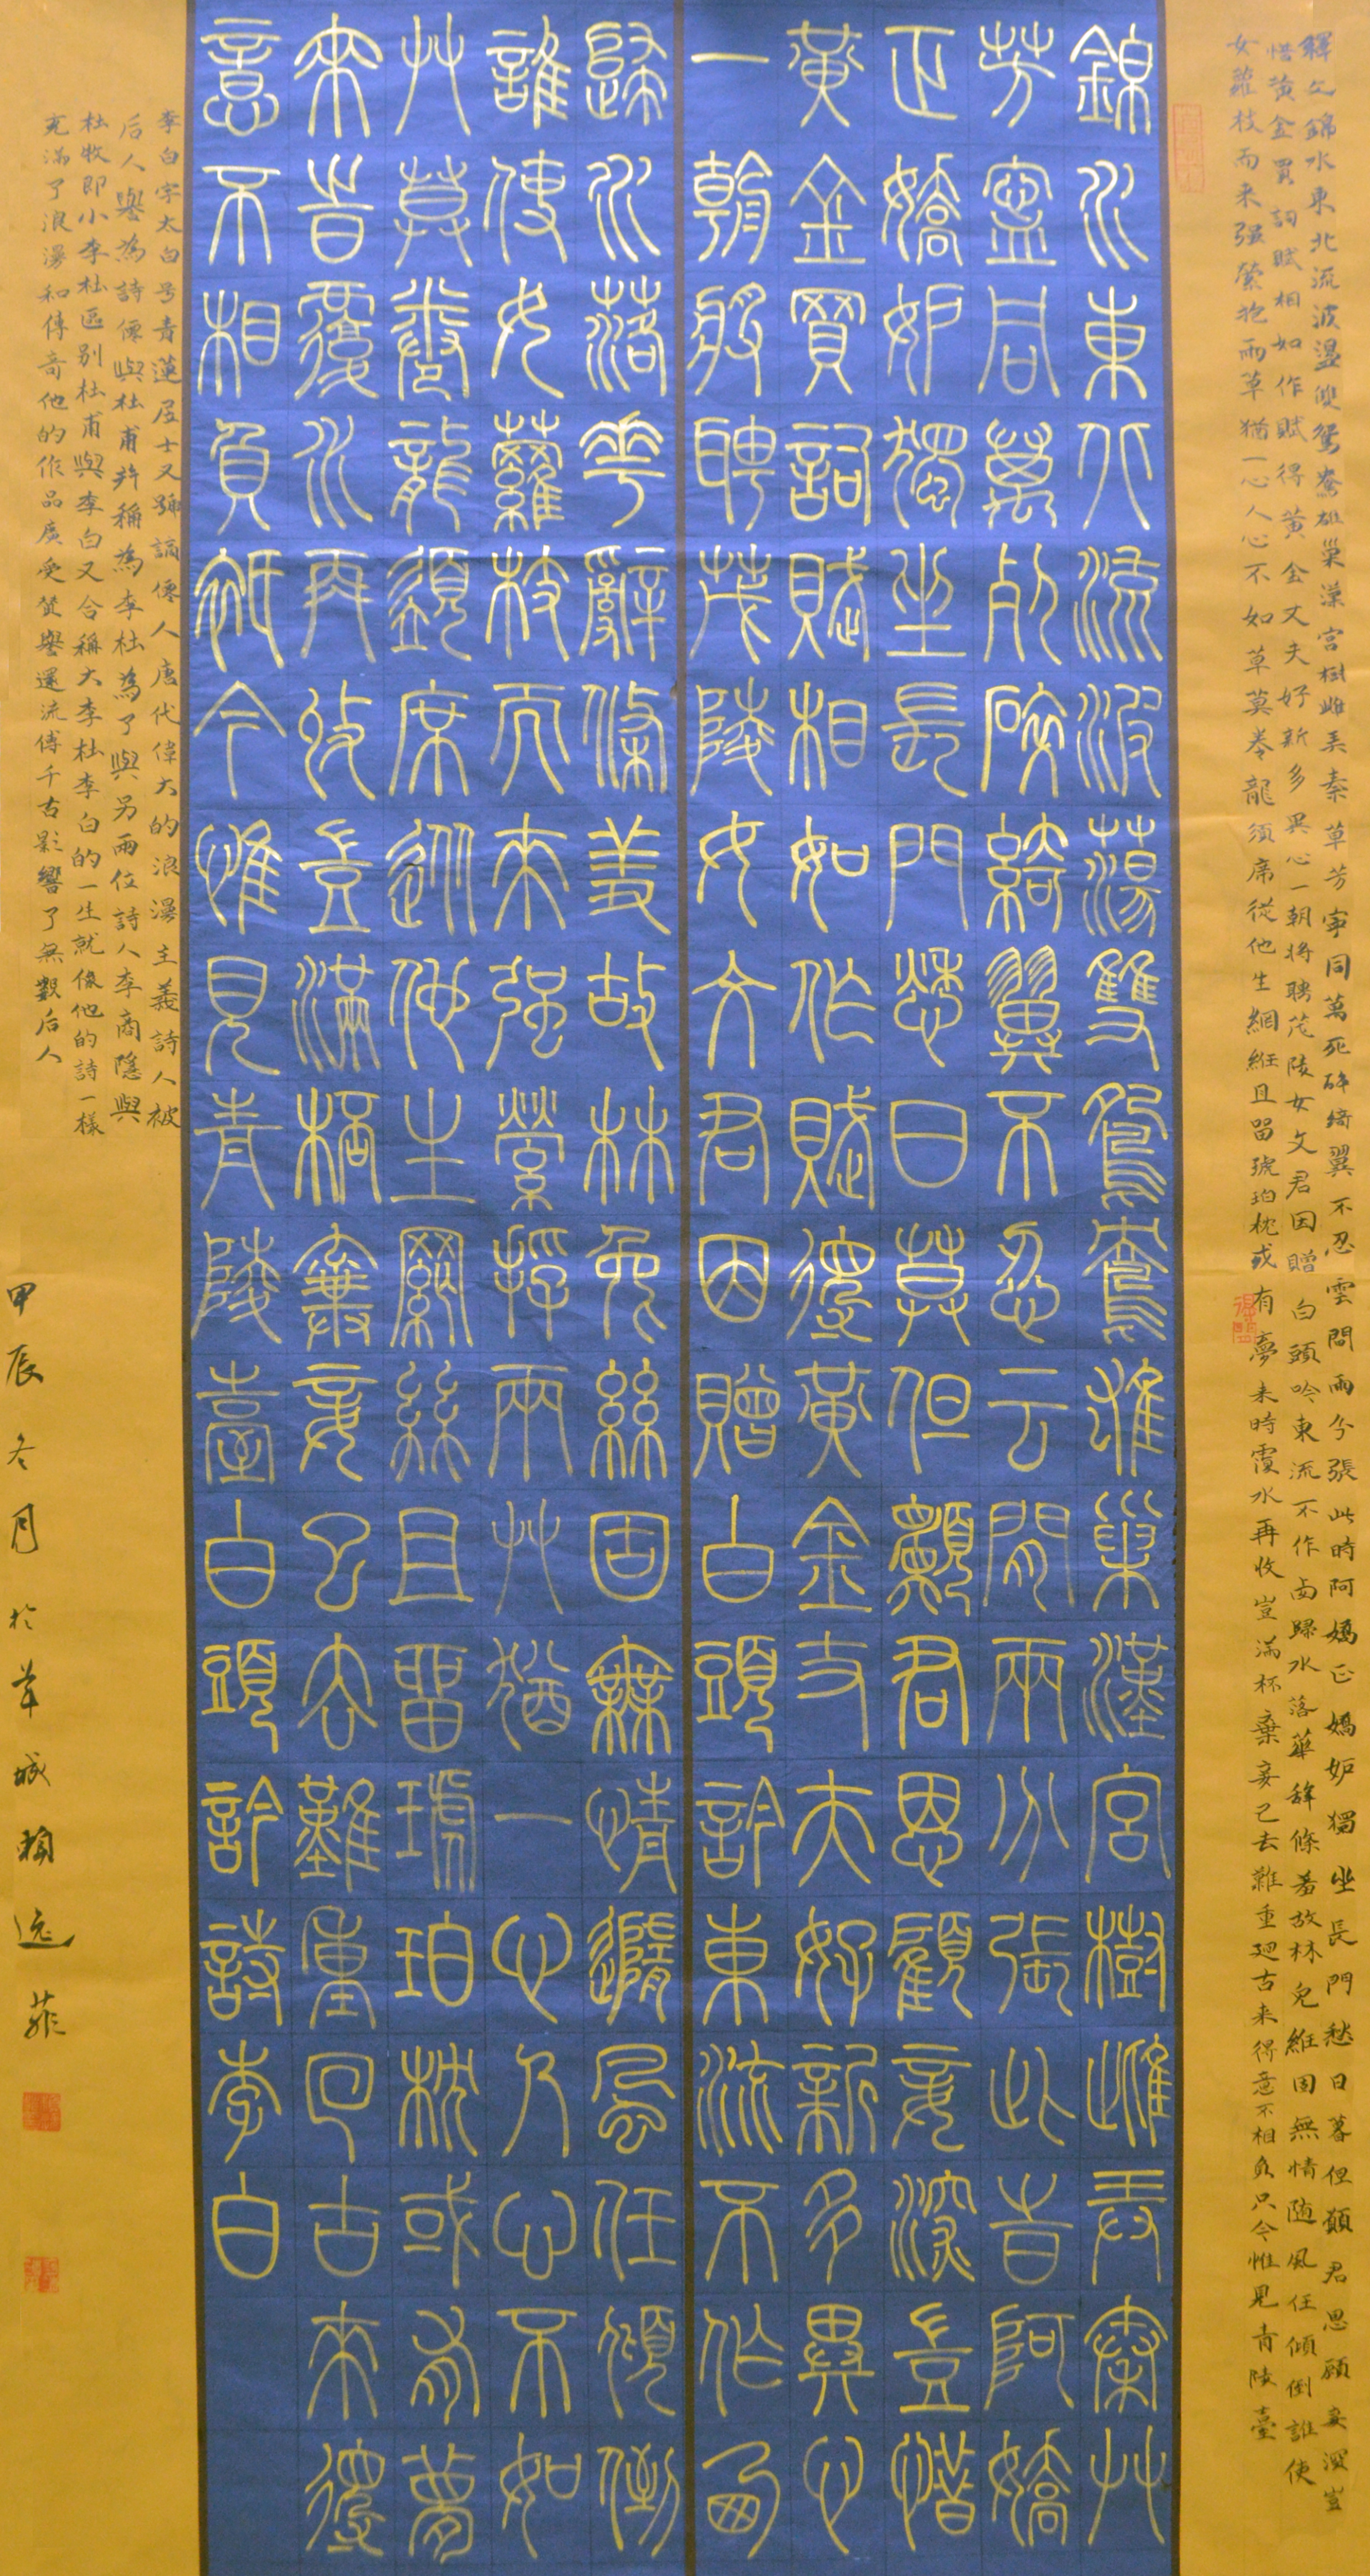 釋文錦水東北流波盪雙鴛鴦雄巢漢宮樹雌弄秦草芳寧同萬死碎綺翼不忍雲間兩分張此時阿嬌正嬌妒獨坐長門愁日暮但願君恩顧妾深豈
惜黃金買詞賦相如作賦得黃金丈夫好新多異心一朝將聘茂陵女文君因贈白頭吟東流不作西歸水落華辭條羞故林兔絲固無情随風任傾倒誰使
女蘿枝而来强縈抱兩草猶一心人心不如草莫卷龍须席從他生網絲且留琥珀枕或有夢来時覆水再收豈滿杯棄妾已去難重迴古来得意不相負只今惟見青陵臺
錦水東北流波蕩雙鴛鴦雄巢漢宮樹雌弄秦艸
芳寧同萬死碎綺翼不忍云間兩分張此時阿嬌
正嬌妒獨坐長門愁日莫但願君恩顧妾深豈惜
黃金買詞賦相如作賦得黃金丈夫好新多異心
一朝將聘茂陵女文君因贈白頭吟東流不作西
歸水落華辭條羞故林兔絲固無情隨風任傾倒
誰使女蘿枝而來强縈抱兩艸猶一心人心不如
艸莫卷龍須席從他生網絲且留琥珀枕或有夢
來時覆水再收豈滿桮棄妾已去難重回古來得
意不相負祇今惟見青陵臺白頭吟詩李白
李白字太白号青蓮居士又號謫僊人唐代偉大的浪漫主義詩人被
后人譽為詩僊與杜甫并稱為李杜為了與另兩位詩人李商隱與
杜牧即小李杜區别杜甫與李白又合稱大李杜李白的一生就像他的詩一樣
充滿了浪漫和傳奇他的作品廣受贊譽還流傳千古影響了無數后人
甲辰冬月於羊城賴远菲